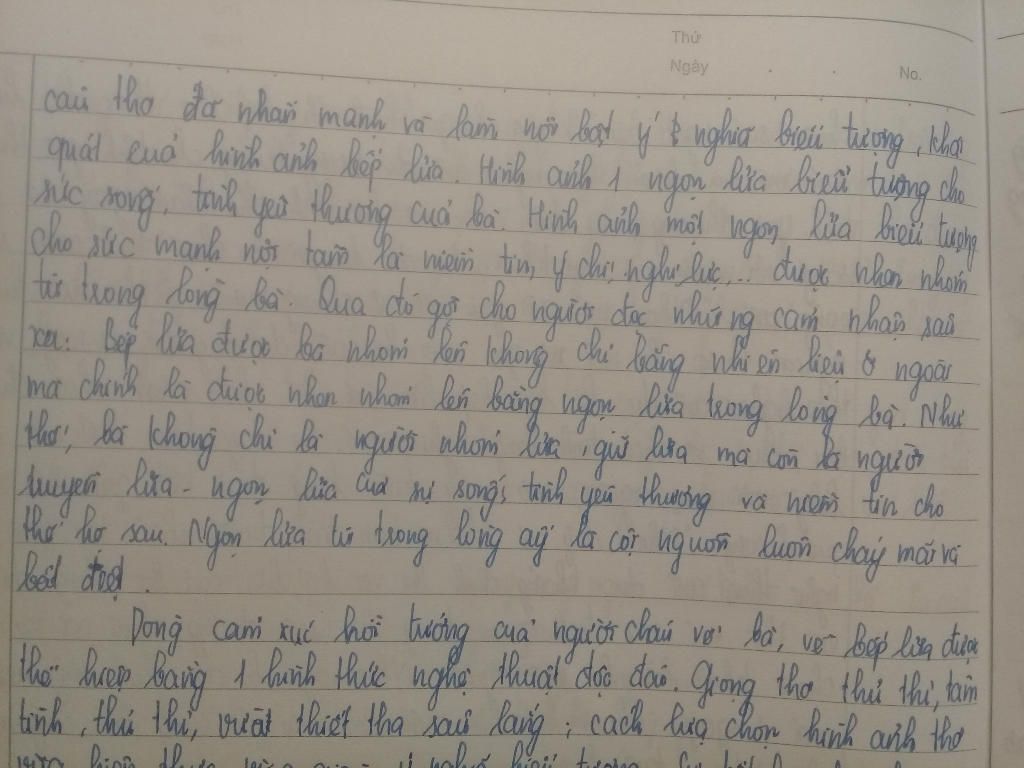 Thứ
Ngày . . No.
câu thơ đã nhấn mạnh và làm nổi bật ý nghĩa biểu tượng, khái
quát của hình ảnh bếp lửa. Hình ảnh 1 ngọn lửa biểu tượng cho
sức sống, tình yêu thương của bà. Hình ảnh một ngọn lửa biểu tượng
cho sức mạnh nội tâm là niềm tin, ý chí, nghị lực,... được nhen nhóm
từ trong lòng bà. Qua đó gợi cho người đọc những cảm nhận sâu
xa: bếp lửa được bà nhóm lên không chỉ bằng nhiên liệu ở ngoài
mà chính là được nhen nhóm lên bằng ngọn lửa trong lòng bà. Như
thế, bà không chỉ là người nhóm lửa, giữ lửa mà còn là người
truyền lửa - ngọn lửa của sự sống, tình yêu thương và niềm tin cho
thế hệ sau. Ngọn lửa từ trong lòng ấy là cội nguồn luôn cháy mãi và
bất diệt.
Dòng cảm xúc hồi tưởng của người cháu với bà, về bếp lửa được
thể hiện bằng 1 hình thức nghệ thuật độc đáo. Giọng thơ thủ thỉ, tâm
tình, thủ thỉ, vừa thiết tha sâu lắng; cách lựa chọn hình ảnh thơ